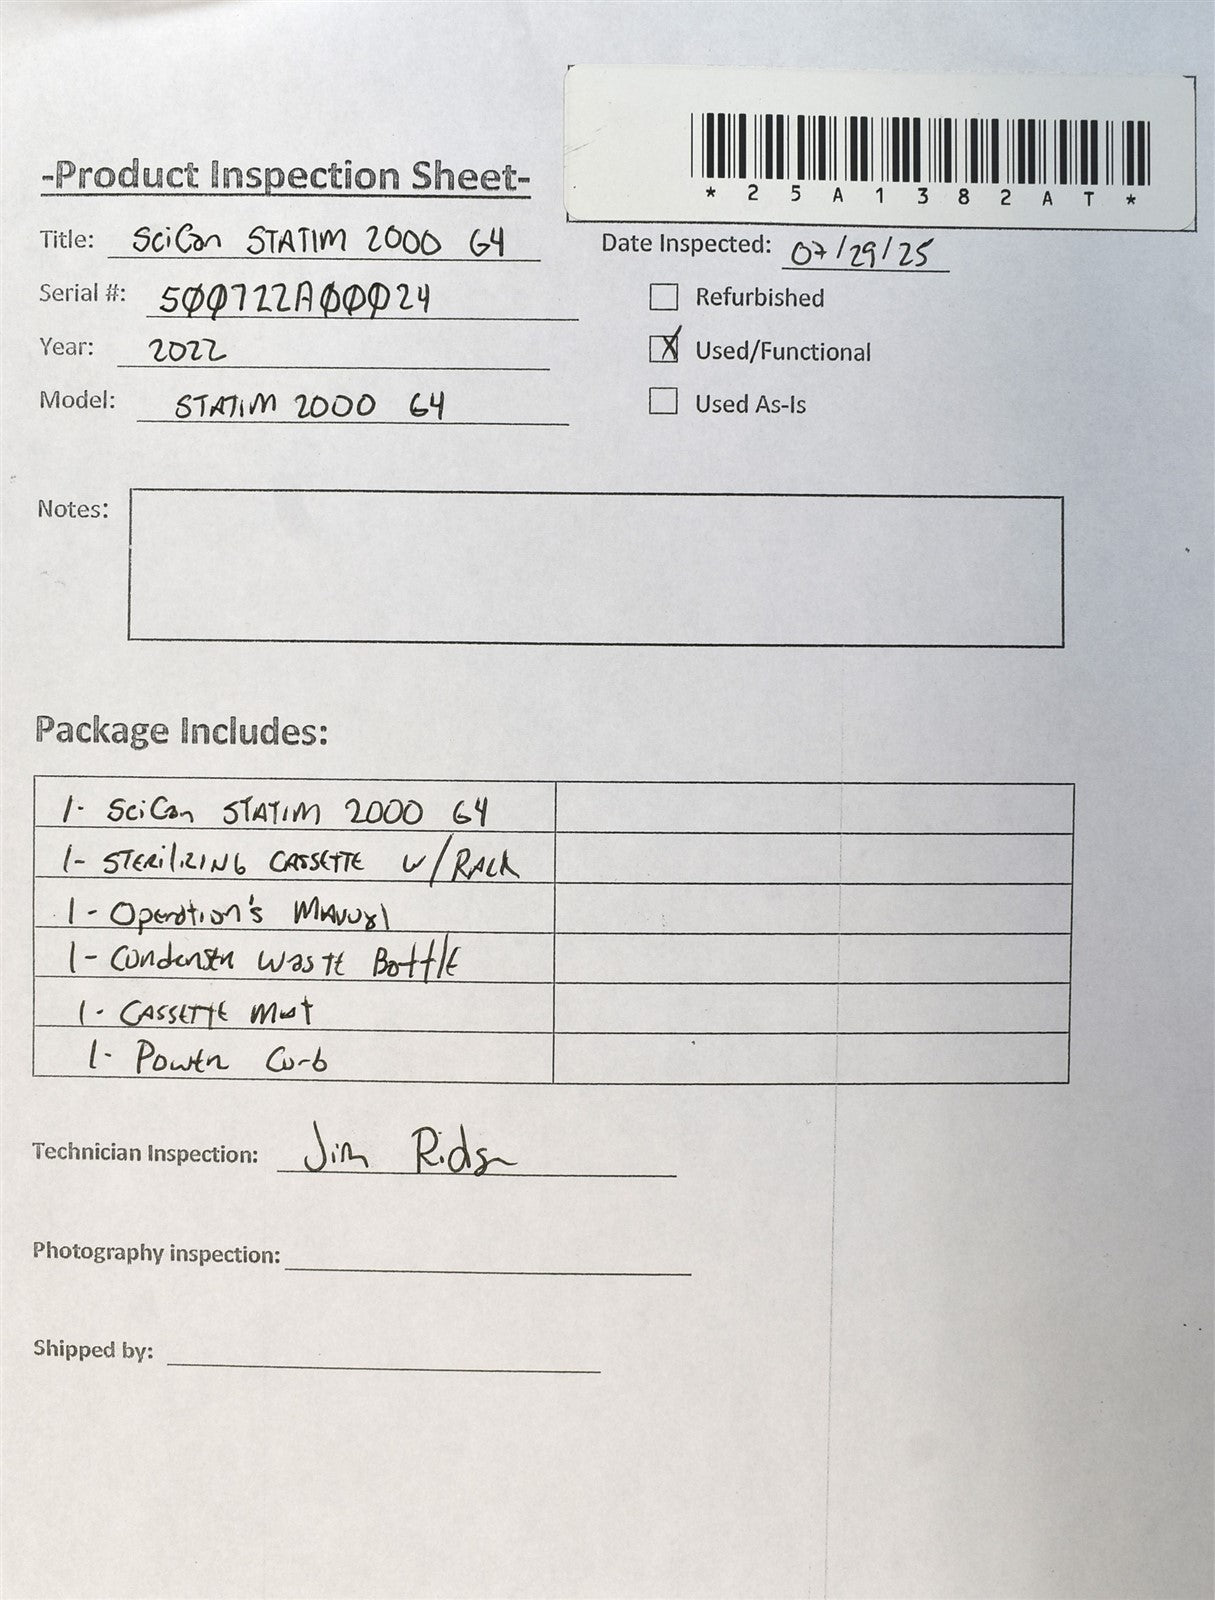 *25A1382AT*
-Product Inspection Sheet-
Title: SciCan STATIM 2000 G4
Date Inspected: 07/29/25
Serial #: 500722A00024
Refurbished
Year: 2022
X Used/Functional
Model: STATIM 2000 G4
Used As-Is
Notes:
Package Includes:
1- SciCan STATIM 2000 G4
1- STERILIZING CASSETTE w/RACK
1- Operation's MANUAl
1- Condenser Waste Bottle
1- CASSETTE Mat
1- Power Cord
Technician Inspection: Jim
Photography inspection:
Shipped by: